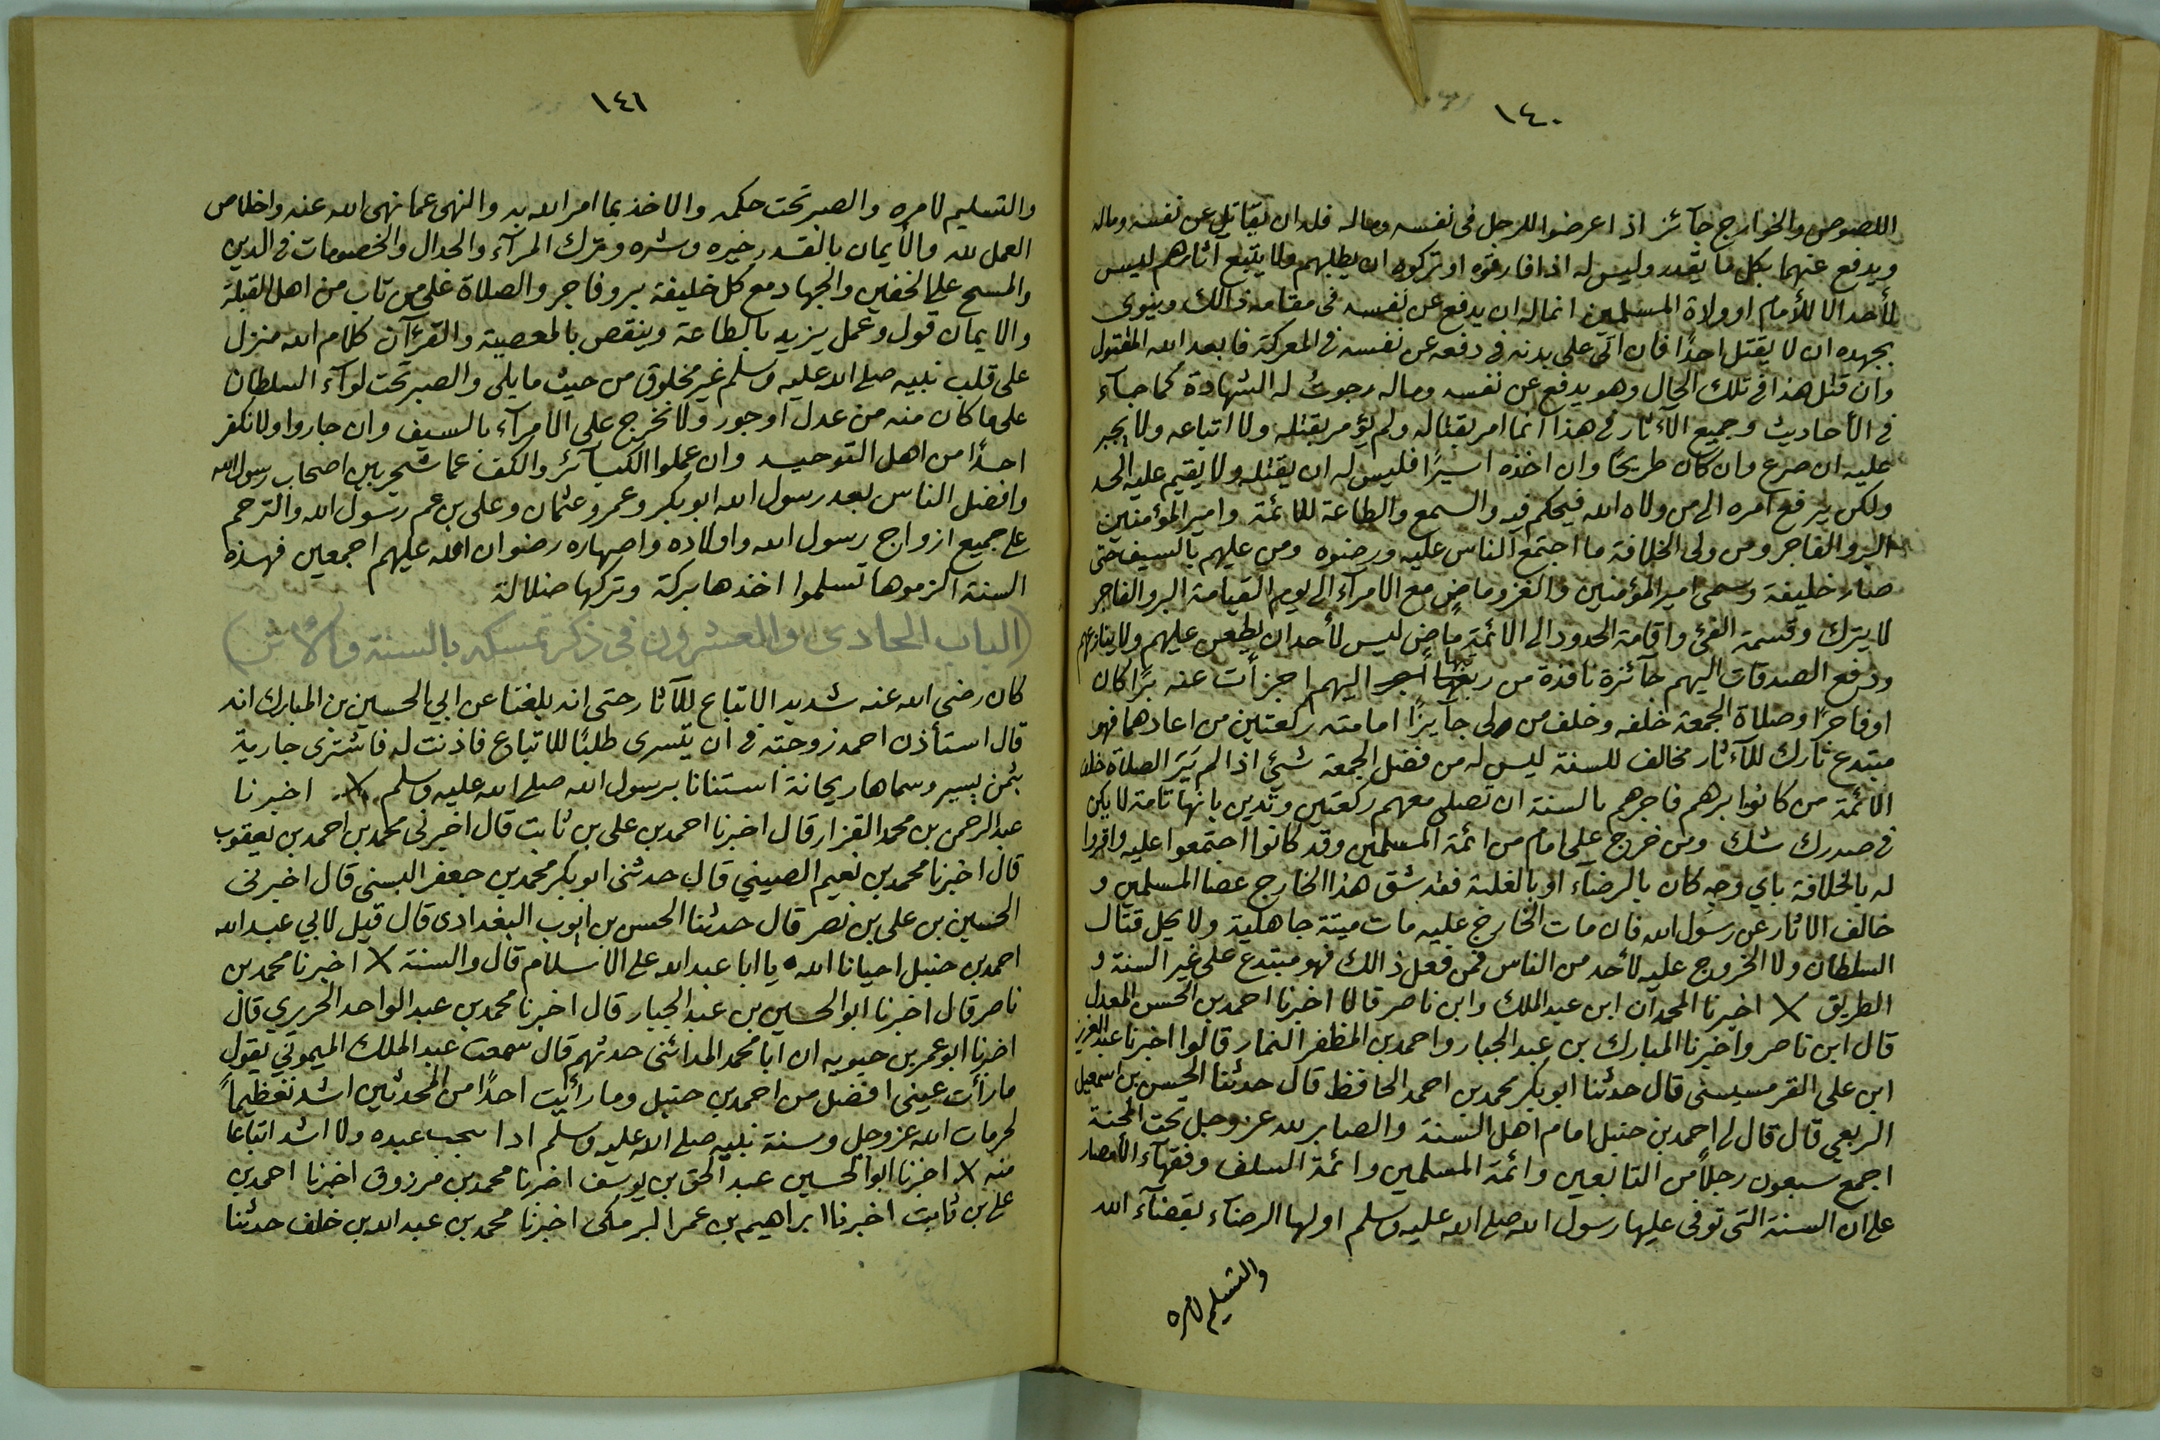 ١٤٠
اللصوص والخوارج جآئز اذا عرضوا للرجل فى نفسه وماله فله ان يقاتل عن نفسه وماله
ويدفع عنهما بكل ما يقدر وليس له اذا فارقوه او تركوه ان يطلبهم ولا يتبع اثارهم ليس
لأحد الا للأمام او ولاة المسلمين انما له ان يدفع عن نفسه فى مقامه ذالك وينوى
بجهده ان لا يقتل احدًا فان اتى على بدنه فى دفعه عن نفسه فى المعركة فابعد الله المقتول
وان قتل هذا فى تلك الحال وهو يدفع عن نفسه وماله رجوتُ له الشهادة كما جآء
فى الأحاديث وجميع الآثار فى هذا انما امر بقتاله ولم يؤمر بقتله ولا اتباعه ولا يجبر
عليه ان صرع وان كان طريحًا وان اخذه اسيرًا فليس له ان يقتله ولا يقيم عليه الحد
ولكن يرفع امره الى من ولاه الله فيحكم فيه والسمع والطاعة للائمة وامير المؤمنين
البر والفاجر ومن ولى الخلافة ما اجتمع الناس عليه ورضوه ومن عليهم بالسيف حتى
صار خليفة وسمى امير المؤمنين والغزو ماضٍ مع الامرآء الى يوم القيامة البر والفاجر
لا يترك وقسمة الفئ واقامة الحدود الى الائمة ماضٍ ليس لأحد ان يطعن عليهم ولا ينازعهم
ودفع الصدقات اليهم جآئزة نافذة من دفعها اليهم اجزأت عنه برًا كان
او فاجرًا وصلاة الجمعة خلفه وخلف من ولى جآيزًا امامته ركعتين من اعادهما فهو
مبتدع تارك للآثار مخالف للسنة ليس له من فضل الجمعة شئ اذا لم يَرَ الصلاة خلف
الائمة من كانوا برهم فاجرهم بالسنة ان تصلى معهم ركعتين وتدين بانها تامة لا يكن
فى صدرك شك ومن خرج على امام من ائمة المسلمين وقد كانوا اجتمعوا عليه واقروا
له بالخلافة باي وجه كان بالرضاء او بالغلبة فقد شق هذا الخارج عصا المسلمين و
خالف الاثار عن رسول الله فان مات الخارج عليه مات ميتة جاهلية ولا يحل قتال
السلطان ولا الخروج عليه لأحد من الناس فمن فعل ذالك فهو مبتدع على غير السنة و
الطريق X اخبرنا المحمدان ابن عبد الملك وابن ناصر قالا اخبرنا احمد بن الحسن المعدل
قال ابن ناصر واخبرنا المبارك بن عبد الجبار واحمد بن المظفر التمار قالوا اخبرنا عبد العزيز
ابن على القرمسينى قال حدثنا ابو بكر محمد بن احمد الحافظ قال حدثنا الحسن بن اسمعيل
الربعي قال قال لى احمد بن حنبل امام اهل السنة والصابر لله عز وجل تحت المحنة
اجمع سبعون رجلاً من التابعين وائمة المسلمين وائمة السلف وفقهآء الأمصار
على ان السنة التى توفى عليها رسول الله صلى الله عليه وسلم اولها الرضاء بقضآء الله
والتسليم لامره
١٤١
والتسليم لامره والصبر تحت حكمه والاخذ بما امر الله به والنهى عما نهى الله عنه واخلاص
العمل لله والأيمان بالقدر خيره وشره وترك المرآء والجدال والخصومات فى الدين
والمسح على الخفين والجهاد مع كل خليفة بر وفاجر والصلاة على من تاب من اهل القبلة
والايمان قول وعمل يزيد بالطاعة وينقص بالمعصية والقرءآن كلام الله منزل
على قلب نبيه صلى الله عليه وسلم غير مخلوق من حيث ما يلى والصبر تحت لوآء السلطان
على ما كان منه من عدل او جور ولا نخرج على الامرآء بالسيف وان جاروا ولا نكفر
احدًا من اهل التوحيد وان عملوا الكبآئر والكف عما شجر بين اصحاب رسول الله
وافضل الناس بعد رسول الله ابو بكر وعمر وعثمان وعلى بن عم رسول الله والترحم
على جميع ازواج رسول الله واولاده واصهاره رضوان الله عليهم اجمعين فهذه
السنة الزموها تسلموا اخذها بركة وتركها ضلالة
(الباب الحادى والعشرون فى ذكر تمسكه بالسنة والأثر)
كان رضي الله عنه شديد الاتباع للآثار حتى انه بلغنا عن ابي الحسين بن المبارك انه
قال استأذن احمد زوجته فى ان يتسرى طلبًا للاتباع فاذنت له فاشترى جارية
بثمن يسير وسماها ريحانة استنانا برسول الله صلى الله عليه وسلم X اخبرنا
عبد الرحمن بن محمد القزار قال اخبرنا احمد بن على بن ثابت قال اخبرنى محمد بن احمد بن يعقوب
قال اخبرنا محمد بن نعيم الضبيني قال حدثنى ابو بكر محمد بن جعفر البستى قال اخبرنى
الحسين بن على بن نصر قال حدثنا الحسن بن ايوب البغدادى قال قيل لابي عبد الله
احمد بن حنبل احيانا الله يا ابا عبد الله على الاسلام قال والسنة X اخبرنا محمد بن
ناصر قال اخبرنا ابو الحسين بن عبد الجبار قال اخبرنا محمد بن عبد الواحد الحريري قال
اخبرنا ابو عمر بن حيويه ان ابا محمد المدائنى حدثهم قال سمعت عبد الملك الميموني يقول
ما رأت عينى افضل من احمد بن حنبل وما رأيت احدًا من المحدثين اشد تعظيماً
لحرمات الله عز وجل وسنة نبيه صلى الله عليه وسلم اذا صحت عنده ولا اشد اتباعا
منه X اخبرنا ابو الحسين عبد الحق بن يوسف اخبرنا محمد بن مرزوق اخبرنا احمد بن
على بن ثابت اخبرنا ابراهيم بن عمر البرمكى اخبرنا محمد بن عبد الله بن خلف حدثنا